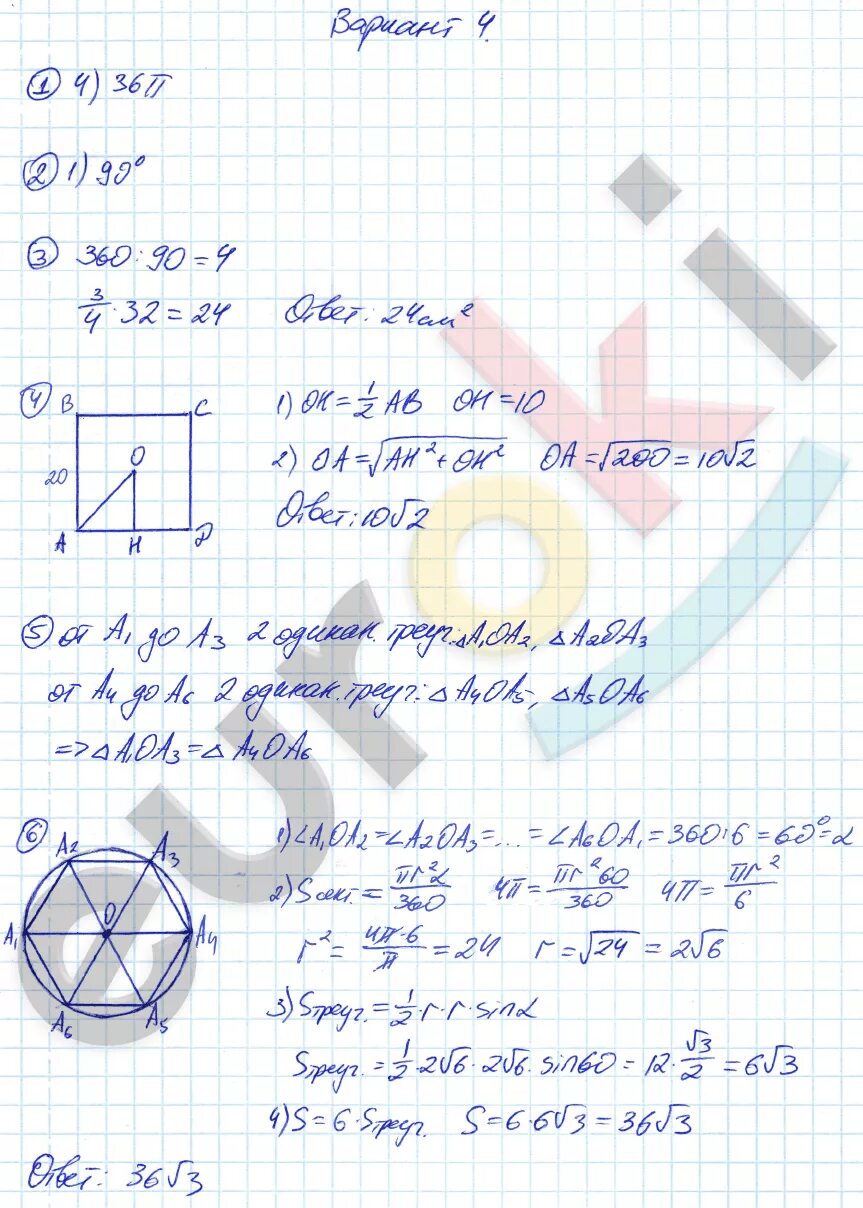 Вариант 4.
① 4) 36π
② 1) 90°
③ 360:90=4
3/4·32=24 Ответ: 24см²
④ B C
1) OH=1/2 AB OH=10
O
20
2) OA=√(AH²+OH²) OA=√200=10√2
A H D
Ответ: 10√2
⑤ от A₁ до A₃ 2 одинак. треуг: △A₁OA₂, △A₂OA₃
от A₄ до A₆ 2 одинак. треуг: △A₄OA₅, △A₅OA₆
=> △A₁OA₃=△A₄OA₆
⑥ A₂ A₃
1) ∠A₁OA₂=∠A₂OA₃=...=∠A₆OA₁=360:6=60°=α
2) Sсект.=πr²α/360 4π=πr²60/360 4π=πr²/6
O
A₁ A₄
r²=4π·6/π=24 r=√24=2√6
A₆ A₅
3) Sтреуг.=1/2·r·r·sinα
Sтреуг.=1/2·2√6·2√6·sin60=12·√3/2=6√3
4) S=6·Sтреуг. S=6·6√3=36√3
Ответ: 36√3
euroki